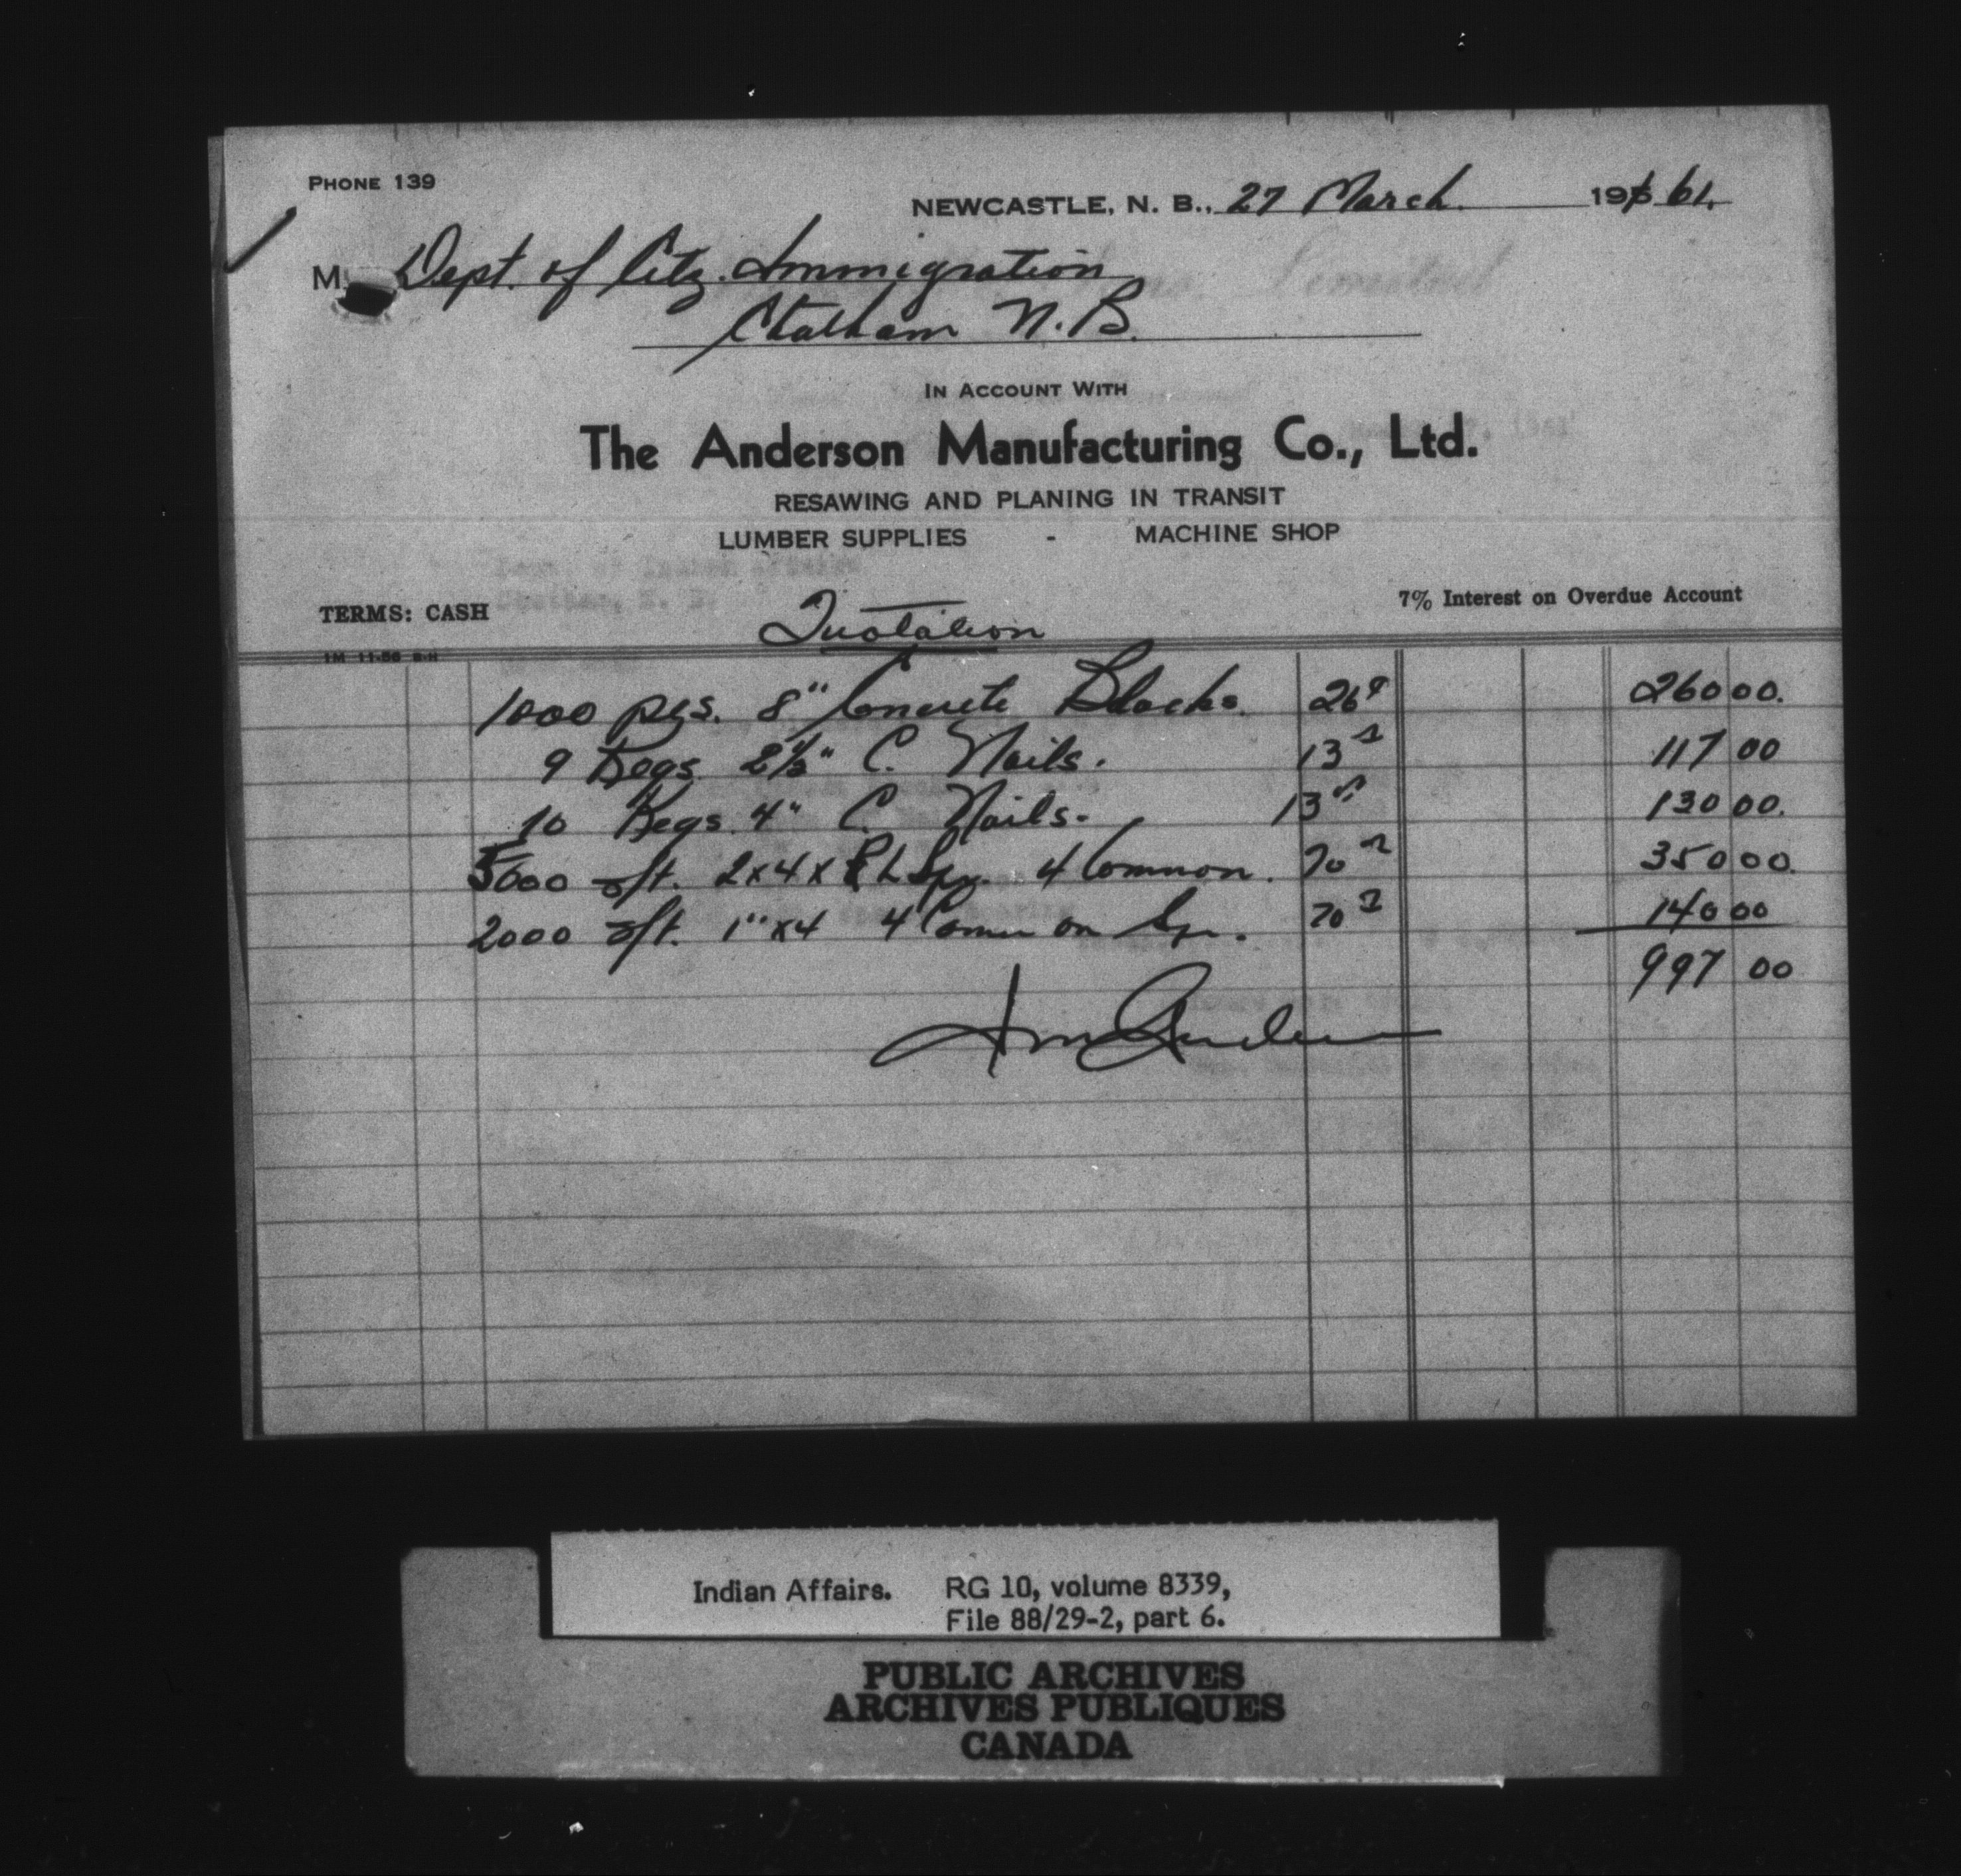 PHONE 139
NEWCASTLE, N. B., 27 March 195 61.
M Dept. of Citz. Immigration
Chatham N.B.
IN ACCOUNT WITH
The Anderson Manufacturing Co., Ltd.
RESAWING AND PLANING IN TRANSIT
LUMBER SUPPLIES - MACHINE SHOP
TERMS: CASH Quotation 7% Interest on Overdue Account
1M 11-56 S-H
1000 pgs. 8" Concrete Blocks. 26¢ 260 00.
9 Kegs 2½" C. Nails. 13 117 00
10 Kegs 4" C. Nails. 13 130 00.
5000 ft. 2x4x 4 Common. 70 350 00.
2000 ft. 1"x4 4 Common Sp. 70 140 00
997 00
Indian Affairs. RG 10, volume 8339,
File 88/29-2, part 6.
PUBLIC ARCHIVES
ARCHIVES PUBLIQUES
CANADA